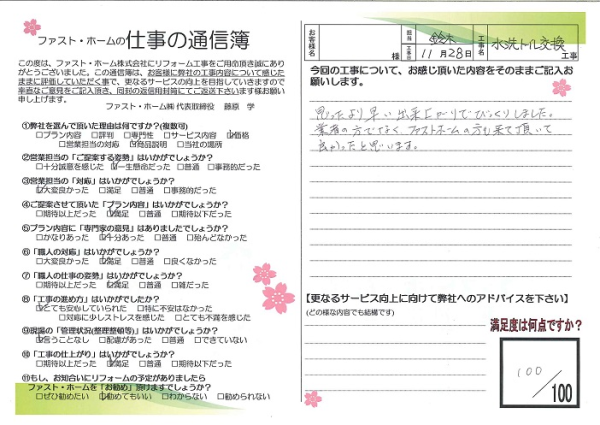 ファスト・ホームの仕事の通信簿
この度は、ファスト・ホーム株式会社にリフォーム工事をご用命頂き誠にあり
がとうございました。この通信簿は、お客様に弊社の工事内容について感じた
ままに評価していただく事で、更なるサービスの向上を目指していきますので
率直なご意見をご記入頂き、同封の返信用封筒にてご返送下さいます様お願い
申し上げます。
ファスト・ホーム㈱ 代表取締役 藤原 学
①弊社を選んで頂いた理由は何ですか?(複数可)
□プラン内容 □評判 □専門性 □サービス内容 ☑価格
□営業担当の対応 ☑商品説明 □当社の場所
②営業担当の「ご提案する姿勢」はいかがでしょうか?
□十分誠意を感じた ☑一生懸命だった □普通 □事務的だった
③営業担当の「対応」はいかがでしょうか?
☑大変良かった □満足 □普通 □事務的だった
④ご提案させて頂いた「プラン内容」はいかがでしょうか?
□期待以上だった ☑満足 □普通 □期待以下だった
⑤プラン内容に「専門家の意見」はありましたでしょうか?
□かなりあった ☑十分あった □普通 □殆んどなかった
⑥「職人の対応」はいかがでしょうか?
□大変良かった ☑満足 □普通 □良くなかった
⑦「職人の仕事の姿勢」はいかがでしょうか?
□期待以上だった ☑満足 □普通 □雑だった
⑧「工事の進め方」はいかがでしたか?
☑とても安心していられた □特に不安はなかった
□対応に少しストレスを感じた □とても不満を感じた
⑨現場の「管理状況(整理整頓等)」はいかがでしょうか?
☑言うことなし □配慮があった □普通 □できていない
⑩「工事の仕上がり」はいかがでしょうか?
□期待以上だった ☑満足 □普通 □期待以下だった
⑪もし、お知合いにリフォームの予定がありましたら
ファスト・ホームを「お勧め」頂けますでしょうか?
□ぜひ勧めたい ☑勧めてもいい □わからない □勧められない
お客様名 様 担当 鈴木 工事日 11月28日 工事名 水洗トル交換 工事
今回の工事について、お感じ頂いた内容をそのままご記入お
願いします。
思ったより早い出来上がりでびっくりしました。
業者の方でなく、ファストホームの方も来て頂いて
良かったと思います。
【更なるサービス向上に向けて弊社へのアドバイスを下さい】
(どの様な内容でも結構です)
満足度は何点ですか?
100/100